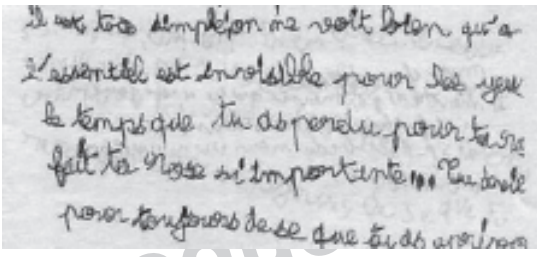 il est tres simple,on ne voit bien qu'a
l'essentiel est invisible pour les yeu
le temps que tu as perdu pour ta ro
fait ta rose si importente... Tu
pour toujours de se que tu as